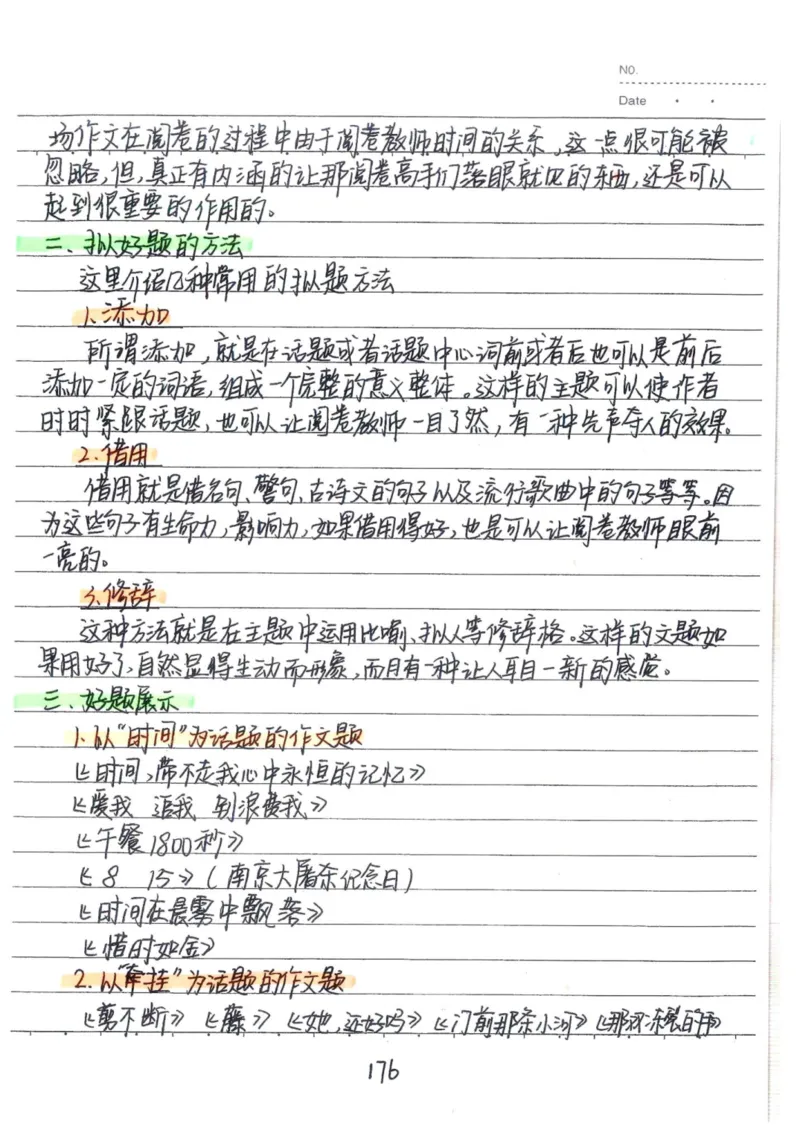 NO.
Date
场作文在阅卷的过程中由于阅卷教师时间的关系,这一点很可能被
忽略,但,真正有内涵的让那阅卷高手们落眼就见的东西,还是可以
起到很重要的作用的。
二、拟好题的方法
这里介绍几种常用的拟题方法
1.添加
所谓添加,就是在话题或者话题中心词前或者后也可以是前后
添加一定的词语,组成一个完整的意义整体。这样的主题可以使作者
时时紧跟话题,也可以让阅卷教师一目了然,有一种先声夺人的效果。
2.借用
借用就是借名句、警句、古诗文的句子以及流行歌曲中的句子等等。因
为这些句子有生命力,影响力,如果借用得好,也是可以让阅卷教师眼前
一亮的。
3.修辞
这种方法就是在主题中运用比喻、拟人等修辞格。这样的文题如
果用好了,自然显得生动而形象,而且有一种让人耳目一新的感觉。
三、好题展示
1.以“时间”为话题的作文题
《时间,带不走我心中永恒的记忆》
《爱我 追我 别浪费我》
《午餐1800秒》
《8 15》(南京大屠杀纪念日)
《时间在晨雾中飘落》
《惜时如金》
2.以“牵挂”为话题的作文题
《剪不断》《藤》《她,还好吗》《门前那条小河》《那河冻裂的
176